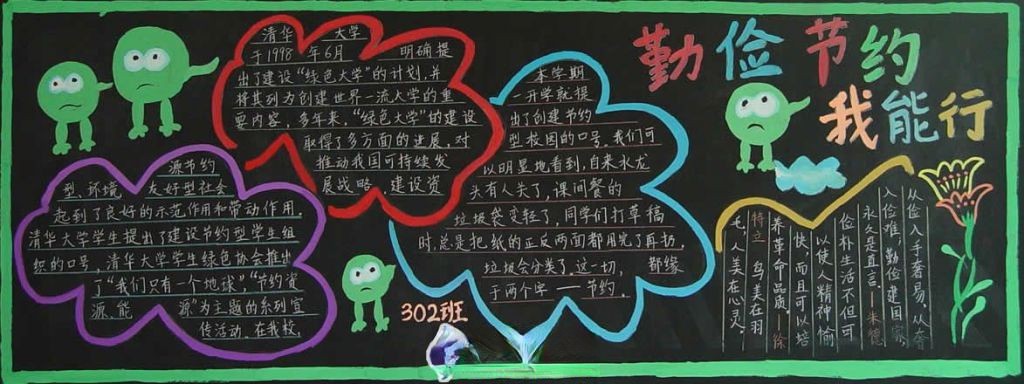 勤俭节约
我能行
清华 大学
于1998 年6月 明确提
出了建设“绿色大学”的计划,并
将其列为创建世界一流大学的重
要内容。多年来,“绿色大学”的建设
取得了多方面的进展,对
推动我国可持续发
展战略,建设资
源节约
型、环境 友好型社会
起到了良好的示范作用和带动作用。
清华大学学生提出了建设节约型学生组
织的口号,清华大学学生绿色协会推出
了“我们只有一个地球”,“节约资
源,能 源”为主题的系列宣
传活动。在我校,
本学期
一开学就提
出了创建节约
型校园的口号。我们可
以明显地看到,自来水龙
头有人关了,课间餐的
垃圾袋变轻了,同学们打草稿
时,总是把纸的正反两面都用完了再扔,
垃圾会分类了。这一切, 都缘
于两个字——节约。
302班
从俭入手奢易,从奢
入俭难,勤俭建国家,
永久是直言。—朱德
俭朴生活不但可
以使人精神愉
快,而且可以培
养革命品质。—徐
特立 鸟美在羽
毛,人美在心灵。